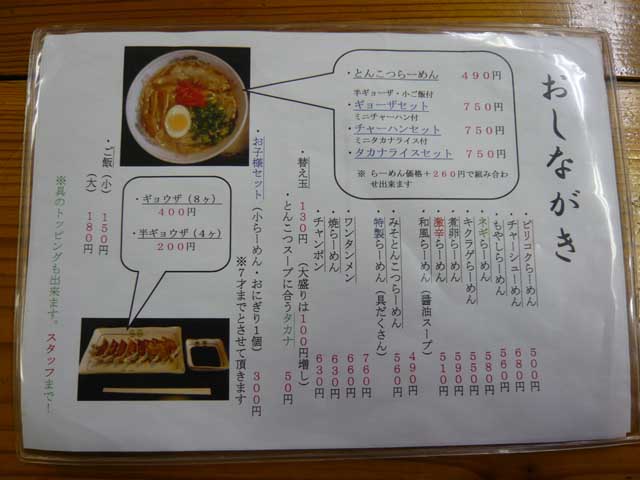 おしながき
・とんこつらーめん 490円
半ギョーザ・小ご飯付
・ギョーザセット 750円
ミニチャーハン付
・チャーハンセット 750円
ミニタカナライス付
・タカナライスセット 750円
※ らーめん価格+260円で組み合わせ出来ます
・ピリコクらーめん 500円
・チャーシューめん 680円
・もやしらーめん 560円
・ネギらーめん 580円
・キクラゲらーめん 550円
・煮卵らーめん 590円
・激辛らーめん 510円
・和風らーめん(醤油スープ) 490円
・みそとんこつらーめん 560円
・特製らーめん(具だくさん) 760円
・ワンタンメン 660円
・焼らーめん 630円
・チャンポン 630円
・替え玉 130円(大盛りは100円増し)
・とんこつスープに合うタカナ 50円
・お子様セット(小らーめん・おにぎり1個) 300円
※7才までとさせて頂きます
・ギョウザ(8ヶ)
400円
・半ギョウザ(4ヶ)
200円
・ご飯(小) 150円
(大) 180円
※具のトッピングも出来ます。スタッフまで!